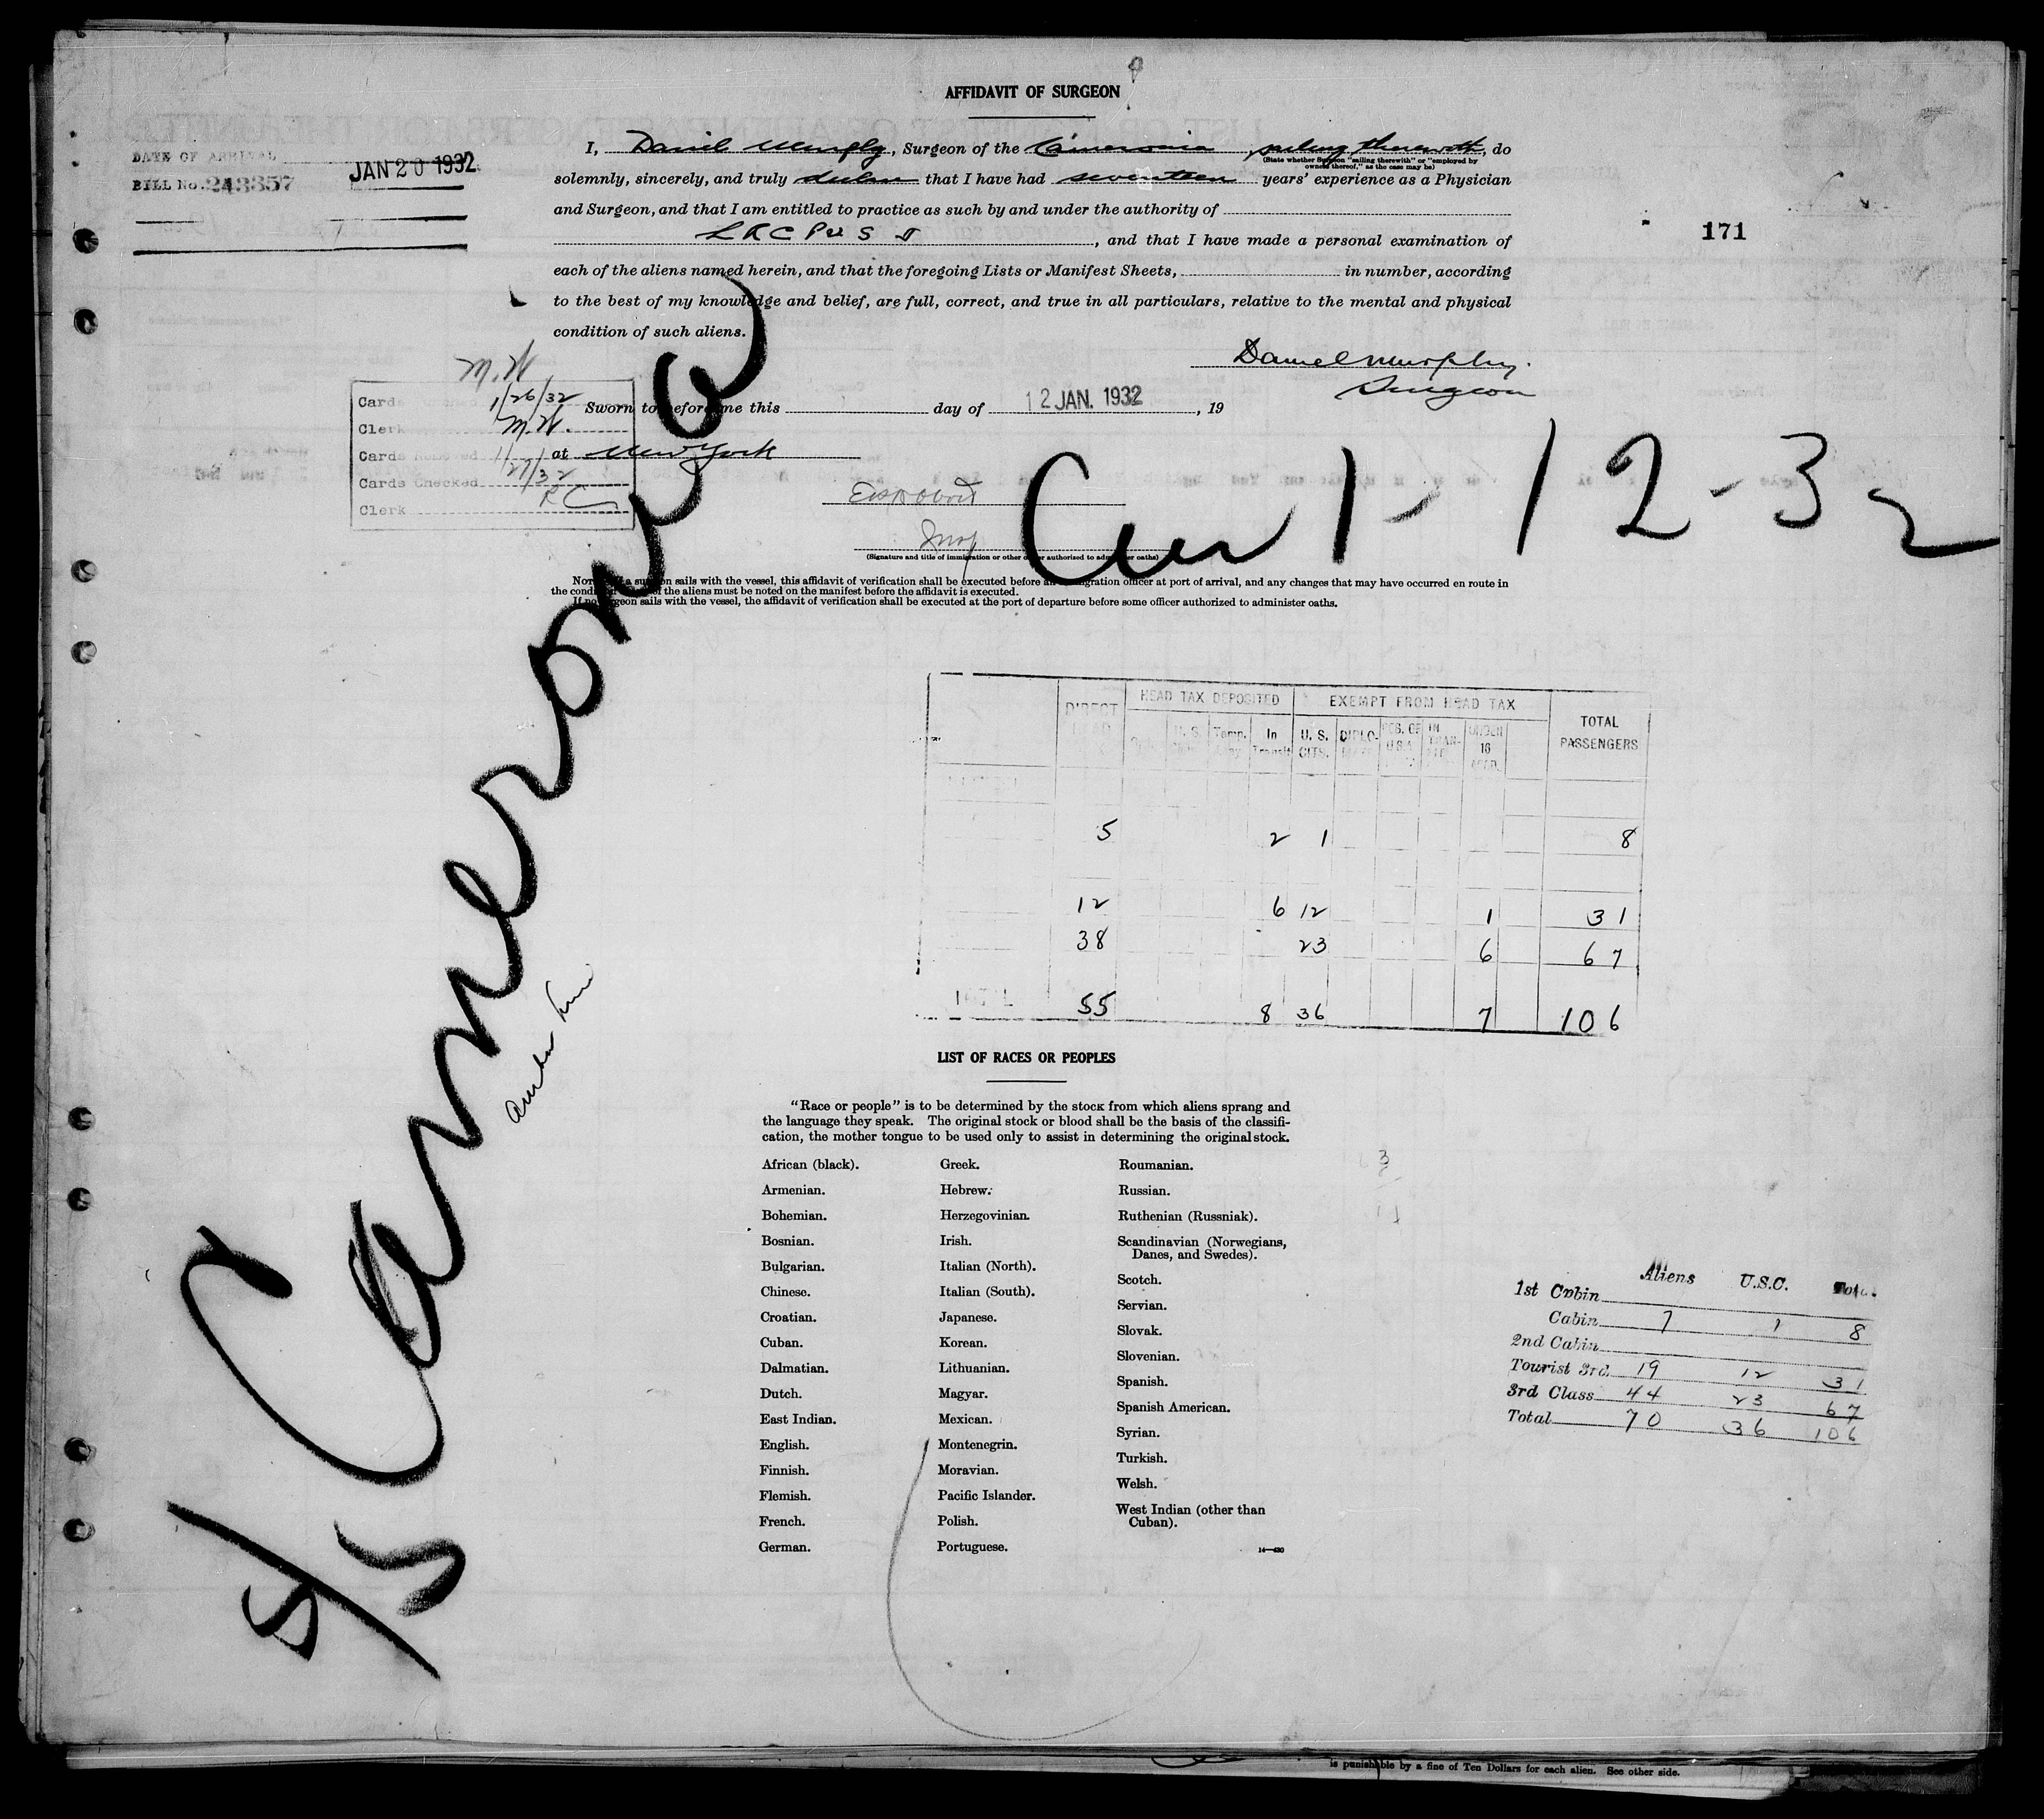 AFFIDAVIT OF SURGEON
DATE OF ARRIVAL JAN 20 1932
BILL No. 243357
I, Daniel Murphy, Surgeon of the Cameronia, sailing therewith, do
(State whether Surgeon "sailing therewith" or "employed by
owners thereof," as the case may be)
solemnly, sincerely, and truly declare that I have had seventeen years' experience as a Physician
and Surgeon, and that I am entitled to practice as such by and under the authority of
L R C P & S I, and that I have made a personal examination of
171
each of the aliens named herein, and that the foregoing Lists or Manifest Sheets, in number, according
to the best of my knowledge and belief, are full, correct, and true in all particulars, relative to the mental and physical
condition of such aliens.
Daniel Murphy.
Surgeon
M.W
Cards 1/26/32
Clerk M.W.
Cards Removed 1/27/32
Cards Checked
Clerk RC
Sworn to before me this day of 12 JAN. 1932, 19
at New York
1-12-32
(Signature and title of immigration or other officer authorized to administer oaths)
NOTE.—If a surgeon sails with the vessel, this affidavit of verification shall be executed before an immigration officer at port of arrival, and any changes that may have occurred en route in
the condition of the aliens must be noted on the manifest before the affidavit is executed.
If no surgeon sails with the vessel, the affidavit of verification shall be executed at the port of departure before some officer authorized to administer oaths.
S/S Cameronia
Anchor Line
DIRECT HEAD
HEAD TAX DEPOSITED
EXEMPT FROM HEAD TAX
TOTAL PASSENGERS
U. S. Temp. In Transit U. S. CITS. DIPLO- RES. OF U.S.A. IN TRAN- UNDER 16
5 2 1 8
12 6 12 1 31
38 23 6 67
TOTAL 55 8 36 7 106
LIST OF RACES OR PEOPLES
"Race or people" is to be determined by the stock from which aliens sprang and
the language they speak. The original stock or blood shall be the basis of the classifi-
cation, the mother tongue to be used only to assist in determining the original stock.
African (black).
Armenian.
Bohemian.
Bosnian.
Bulgarian.
Chinese.
Croatian.
Cuban.
Dalmatian.
Dutch.
East Indian.
English.
Finnish.
Flemish.
French.
German.
Greek.
Hebrew.
Herzegovinian.
Irish.
Italian (North).
Italian (South).
Japanese.
Korean.
Lithuanian.
Magyar.
Mexican.
Montenegrin.
Moravian.
Pacific Islander.
Polish.
Portuguese.
Roumanian.
Russian.
Ruthenian (Russniak).
Scandinavian (Norwegians,
Danes, and Swedes).
Scotch.
Servian.
Slovak.
Slovenian.
Spanish.
Spanish American.
Syrian.
Turkish.
Welsh.
West Indian (other than
Cuban).
14—430
Aliens U.S.C. Total
1st Cabin
Cabin 7 1 8
2nd Cabin
Tourist 3rd. 19 12 31
3rd Class 44 23 67
Total 70 36 106
is punishable by a fine of Ten Dollars for each alien. See other side.